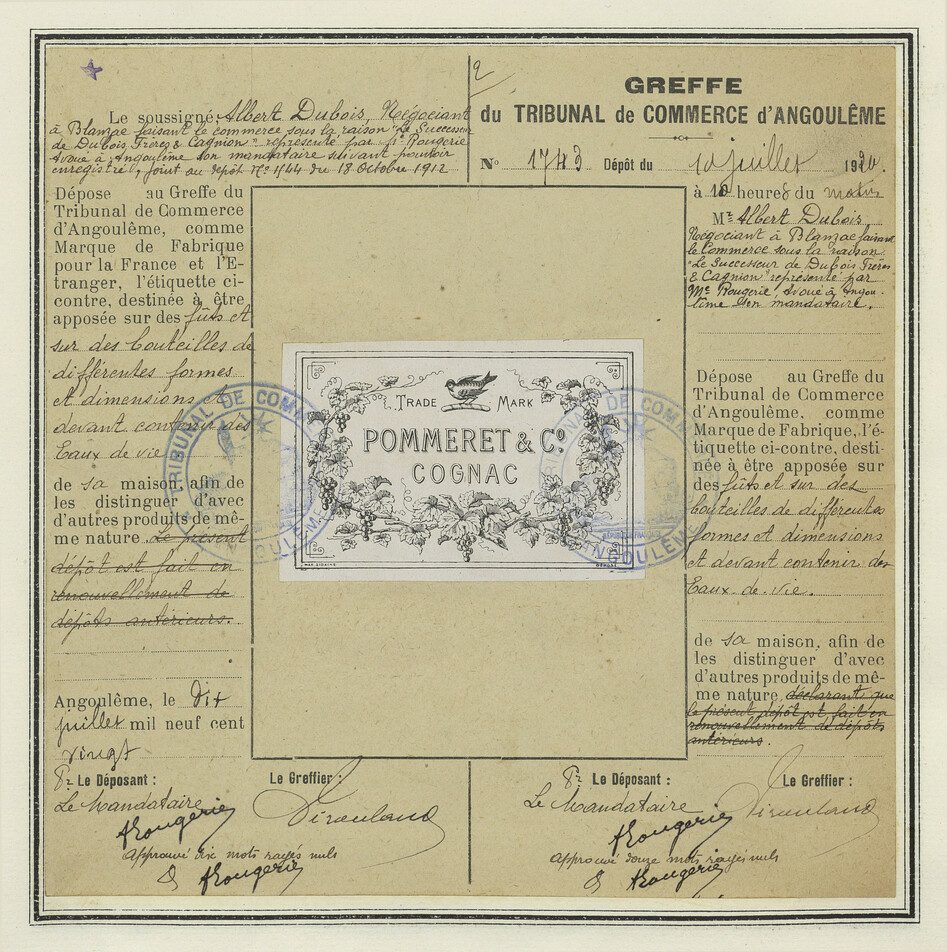 2
Le soussigné, Albert Dubois, Négociant
à Blanzac faisant le commerce sous la raison "Le Successeur
de Dubois Frères & Cagnion" représenté par Me Rougerie
Avoué à Angoulême son mandataire suivant pouvoir
enregistré, joint au dépôt No 1744 du 18 Octobre 1912
Dépose au Greffe du
Tribunal de Commerce
d'Angoulême, comme
Marque de Fabrique
pour la France et l'E-
tranger, l'étiquette ci-
contre, destinée à être
apposée sur des fûts et
sur des bouteilles de
différentes formes
et dimensions et
devant contenir des
Eaux de vie
de sa maison, afin de
les distinguer d'avec
d'autres produits de mê-
me nature. Le présent
dépôt est fait en
renouvellement de
dépôts antérieurs.
Angoulême, le Dix
juillet mil neuf cent
vingt
Pr Le Déposant : Le Greffier :
Le Mandataire
ARougerie
Approuvé dix mots rayés nuls
ARougerie
TRADE MARK
POMMERET & Co.
COGNAC
TRIBUNAL DE COMM
ANGOULÊME
GREFFE
du TRIBUNAL de COMMERCE d'ANGOULÊME
No 1743 Dépôt du 10 juillet 1920.
à 10 heures du matin
Mr Albert Dubois,
Négociant à Blanzac faisant
le Commerce sous la raison
"Le Successeur de Dubois Frères
& Cagnion" représenté par
Me Rougerie, Avoué à Angou-
lême son mandataire.
Dépose au Greffe du
Tribunal de Commerce
d'Angoulême, comme
Marque de Fabrique, l'é-
tiquette ci-contre, desti-
née à être apposée sur
des fûts et sur des
bouteilles de différentes
formes et dimensions
et devant contenir des
Eaux-de-vie.
de sa maison, afin de
les distinguer d'avec
d'autres produits de mê-
me nature, déclarant que
le présent dépôt est fait en
renouvellement de dépôts
antérieurs.
Pr Le Déposant : Le Greffier :
Le Mandataire
ARougerie
Approuvé douze mots rayés nuls
ARougerie